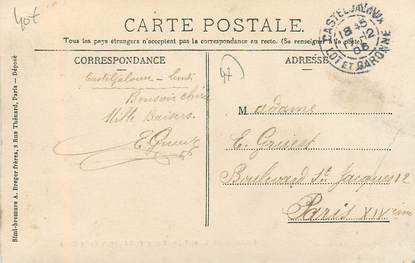 40f
CARTE POSTALE.
Tous les pays étrangers n'acceptent pas la correspondance au recto. (Se renseigner à la poste).
CORRESPONDANCE
ADRESSE
CASTELJALOUX
18 12
LOT ET GARONNE
47
Casteljaloux
Bonsoir chérie
Mille Baisers.
Madame
E.
Boulevard St Jacques 12
Paris XIVème
Simi-bromure A. Breger frères, 9 Rue Thénard, Paris - Déposé